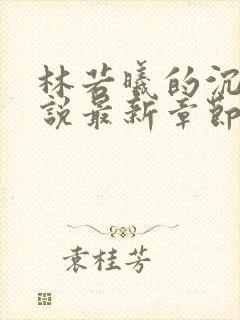 林若曦的沉
説最新章節
袁桂芳